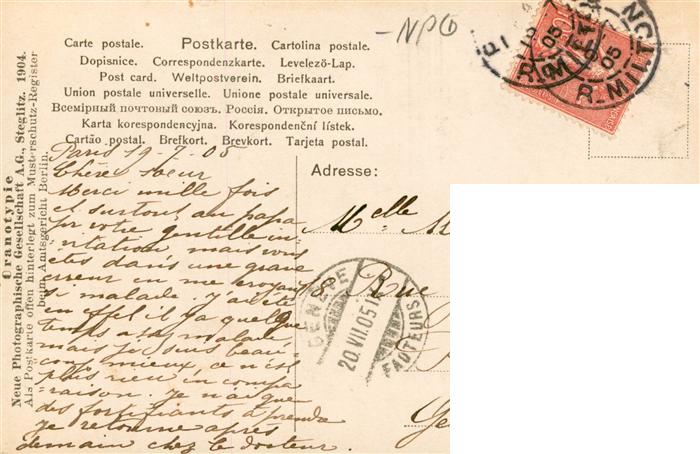 NPG
Carte postale. Postkarte. Cartolina postale.
Dopisnice. Correspondenzkarte. Levelező-Lap.
Post card. Weltpostverein. Briefkaart.
Union postale universelle. Unione postale universale.
Всемірный почтовый союзъ. Россія. Открытое письмо.
Karta korespondencyjna. Korespondenční lístek.
Cartão postal. Brefkort. Brevkort. Tarjeta postal.
Adresse:
Uranotypie
Neue Photographische Gesellschaft A.G., Steglitz. 1904.
Als Postkarte offen hinterlegt zum Musterschutz-Register
beim Amtsgericht Berlin.
Paris 19-7-05
Chère Sœur
Merci mille fois
et surtout au papa
pr votre gentille in-
vitation mais vous
êtes dans une grave
erreur en me croyant
si malade. J'ai été
en effet il y a quelque
temps assez malade
mais je suis beau-
coup mieux, ce n'est
plus rien en compa
raison. Je n'ai que
des fortifiants à prendre
je retourne après
demain chez le docteur.
Melle
8 Rue
Ge
GENÈVE
20.VII.05
FACTEURS
05
R. MILTON